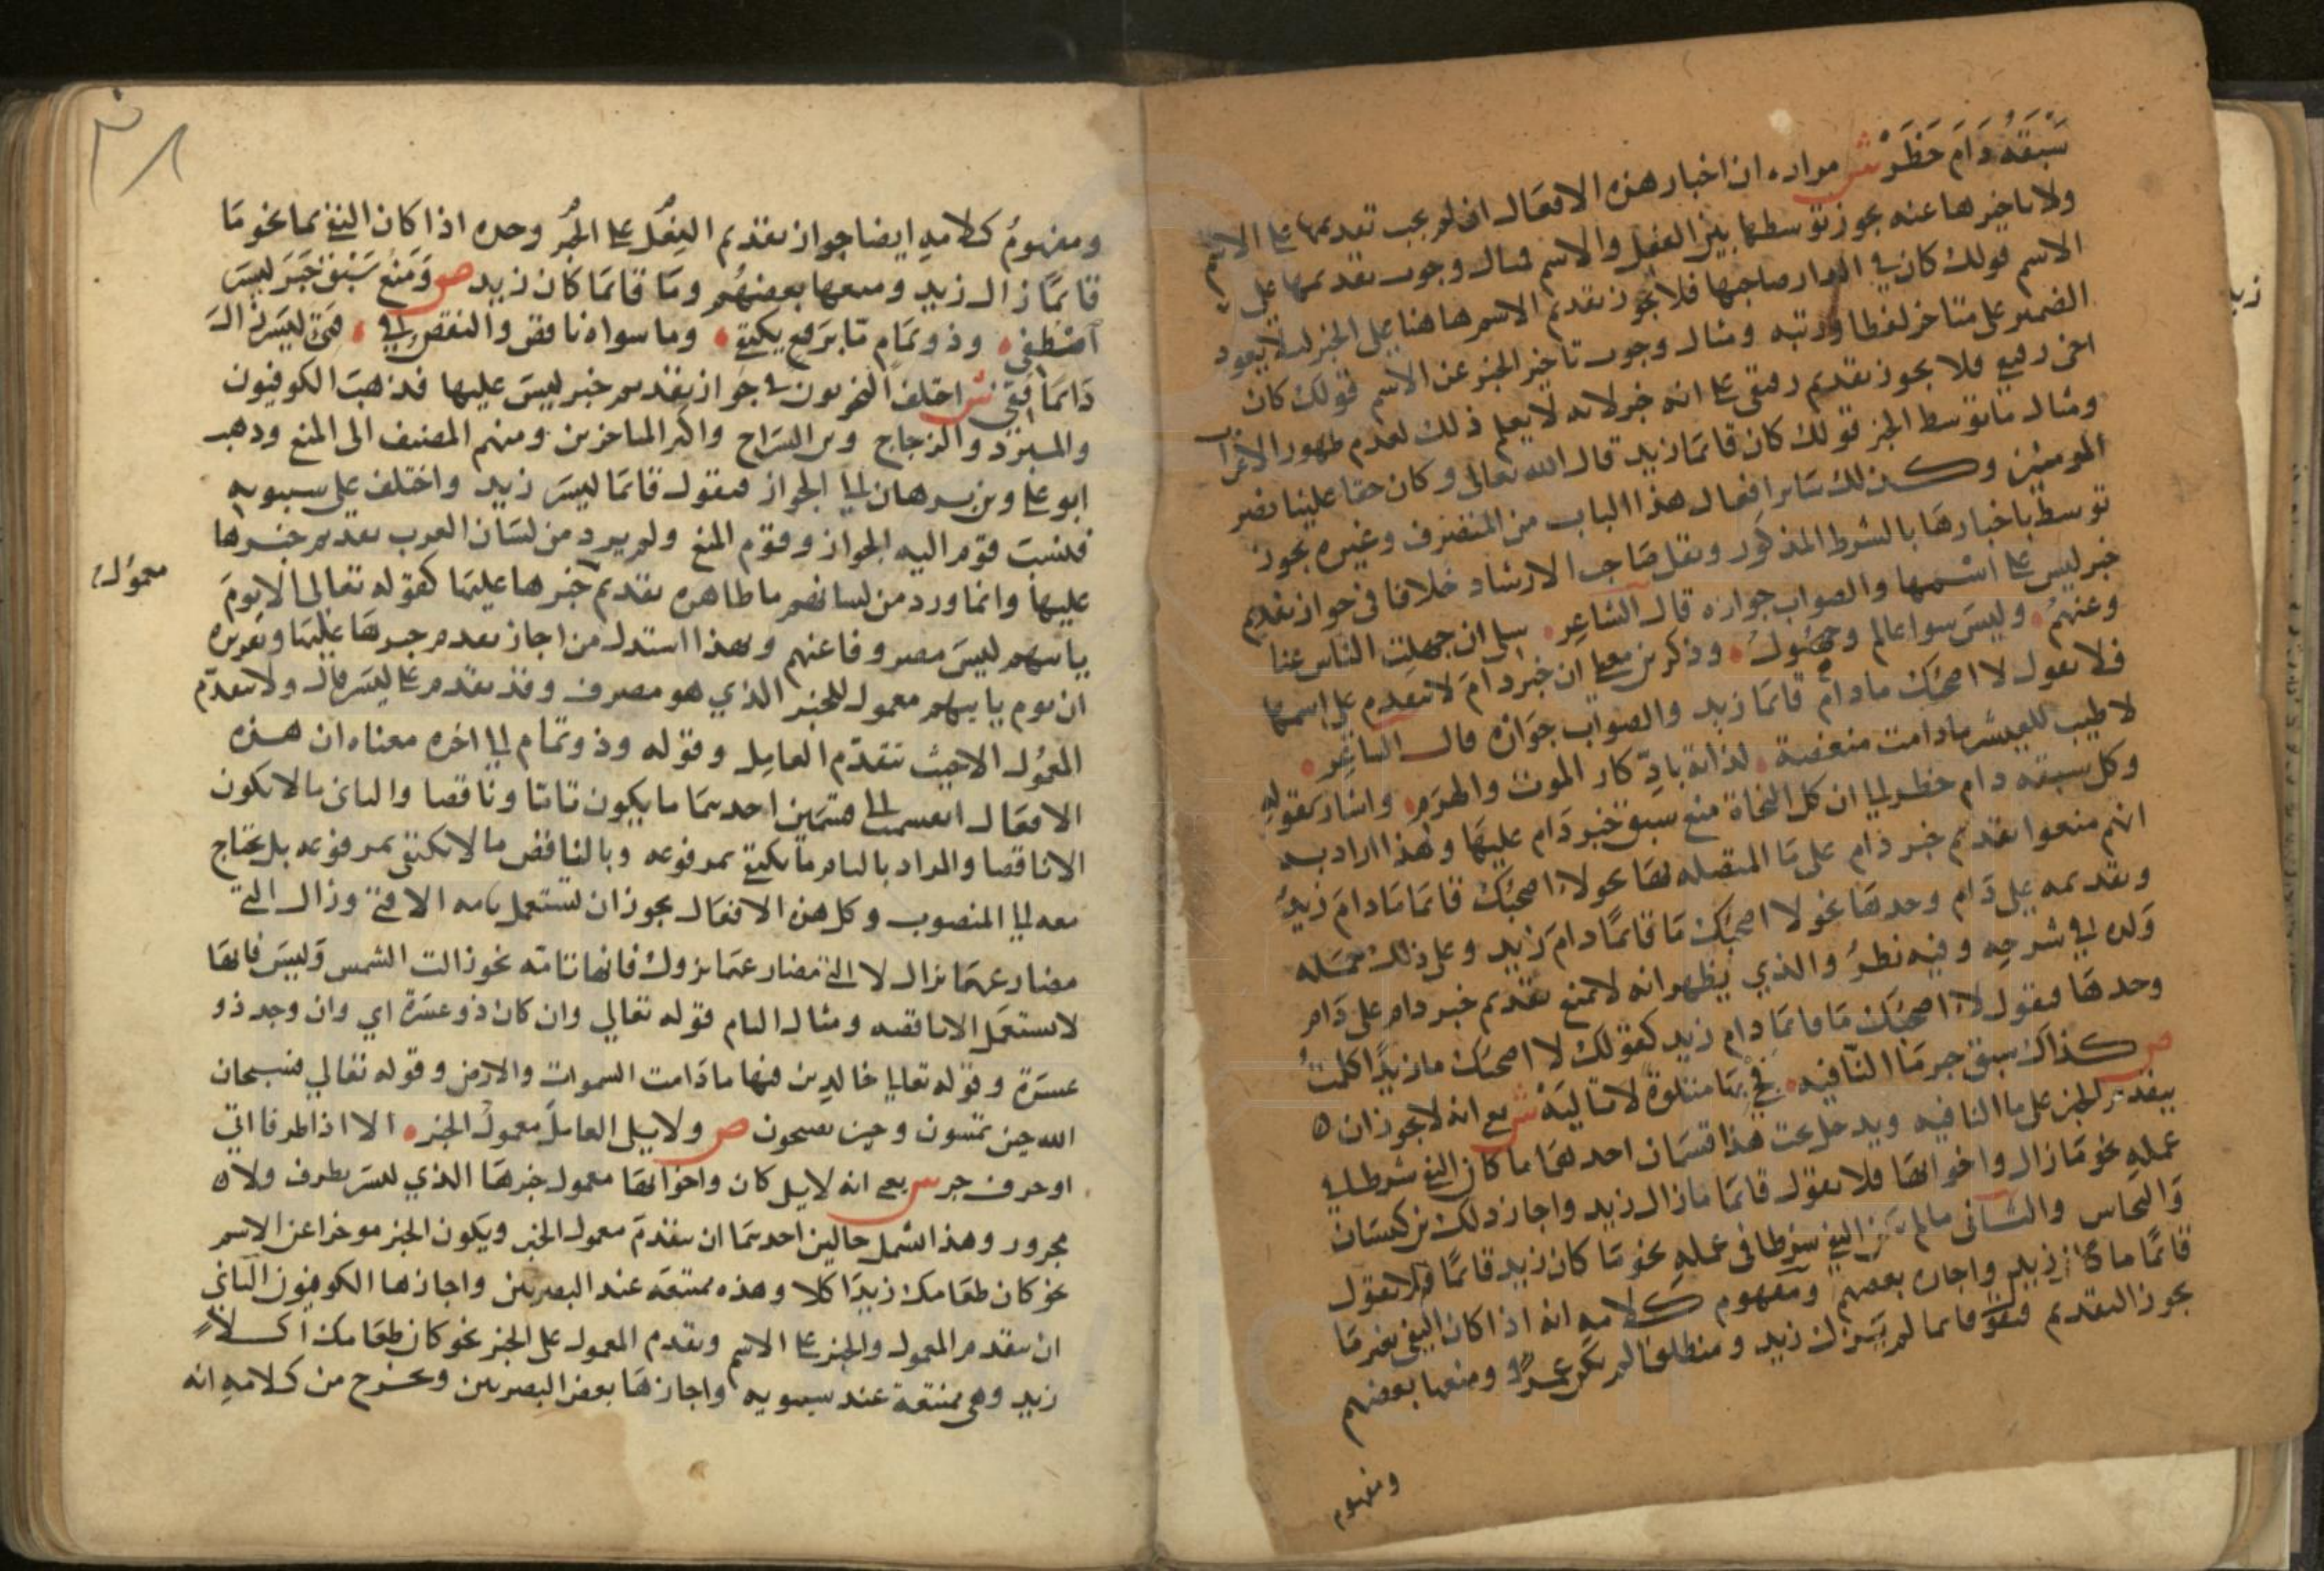 سَبْقَهُ دَامَ حَظَرْ ش مراده ان اخبار هذه الافعال ان لم يجب تقديمها على الاسم
ولا تاخيرها عنه يجوز توسطها بين الفعل والاسم مثال وجوب تقديمها على
الاسم قولك كان في الدار صاحبها فلا يجوز تقديم الاسم هاهنا على الخبر لئلا يعود
الضمير على متاخر لفظا ورتبه ومثال وجوب تاخير الخبر عن الاسم قولك كان
اخى رفيقي فلا يجوز تقديم رفيقي على انه خبر لانه لا يعلم ذلك لعدم ظهور الاعراب
ومثال ما توسط الخبر قولك كان قائما زيد قال الله تعالى وكان حقا علينا نصر
المومنين وكذلك سائر افعال هذا الباب من المتصرف وغيره يجوز
توسط اخبارها بالشرط المذكور ونقل صاحب الارشاد خلافا في جواز تقديم
خبر ليس على اسمها والصواب جوازه قال الشاعر سلى ان جهلت الناس عنا
وعنهم وليس سوا عالم وجهول وذكر بن معط ان خبر دام لا يتقدم على اسمها
فلا تقول لا اصحبك مادام قائما زيد والصواب جوازه قال الشاعر
لا طيب للعيش مادامت منغصة لذاته بادّكار الموت والهرم واشار بقوله
وكل سبقه دام حظر الى ان كل النحاة منع سبق خبر دام عليها وهذا ان اراد به
انهم منعوا تقديم خبر دام على ما المتصله بها نحو لا اصحبك قائما مادام زيد
وتقديمه على دام وحدها نحو لا اصحبك ما قائما دام زيد وعلى ذلك حمله
ولده في شرحه وفيه نظر والذي يظهر انه لا يمنع تقديم خبر دام على دام
وحدها فيقول لا اصحبك ما قائما دام زيد كقولك لا اصحبك ما زيدا كلمت
ص كذاك سبق خبر ما النافيه فجئ بها متلوة لا تاليه ش يعني انه لا يجوز ان
يتقدم الخبر على ما النافيه ويدخل تحت هذا قسمان احدهما ما كان النفي شرطا في
عمله نحو ما زال واخواتها فلا تقول قائما مازال زيد واجاز ذلك بن كيسان
والنحاس والثاني مالم يكن النفي شرطا في عمله نحو ما كان زيد قائما فلا تقول
قائما ما كان زيد واجازه بعضهم ومفهوم كلامه انه اذا كان النفي بغير ما
يجوز التقديم فتقول قائما لم يزل زيد ومنطلقا لم يكن عمرو ومنعها بعضهم
ومفهوم
ومفهومُ كلامه ايضا جواز تقديم الفعل على الخبر وحده اذا كان النفي بما نحو ما
قائمًا زال زيد ومنعها بعضهم وما قائما كان زيد ص وَمَنْعُ سَبْقِ خَبَرَ لَيْسَ
اصْطُفي وذو تمام ما برفع يكتفي وما سواه ناقص والنقص في فتئ ليس زال
دائما قفي ش اختلف النحويون في جواز تقديم خبر ليس عليها فذهب الكوفيون
والمبرد والزجاج وبن السراج واكثر المتاخرين ومنهم المصنف الى المنع وذهب
ابو على وبن برهان الى الجواز فتقول قائما ليس زيد واختلف على سيبويه
فنسب قوم اليه الجواز وقوم المنع ولم يرد من لسان العرب تقديم خبرها
عليها وانما ورد من لسانهم ما ظاهره تقديم خبرها عليها كقوله تعالى الا يوم
معمول
ياتيهم ليس مصروفا عنهم وبهذا استدل من اجاز تقديم خبرها عليها وتقريره
ان يوم ياتيهم معمول للخبر الذي هو مصروف وقد تقدم على ليس قال ولا يتقدم
المعمول الا حيث يتقدم العامل وقوله وذو تمام الى اخره معناه ان هذه
الافعال انقسمت الى قسمين احدهما ما يكون تاما وناقصا والثاني ما لا يكون
الا ناقصا والمراد بالتام ما يكتفي بمرفوعه وبالناقص ما لا يكتفي بمرفوعه بل يحتاج
معه الى المنصوب وكل هذه الافعال يجوز ان تستعمل تامه الا فتئ وزال التي
مضارعها يزال لا التي مضارعها يزول فانها تامه نحو زالت الشمس وليس فانها
لا تستعمل الا ناقصه ومثال التام قوله تعالي وان كان ذو عسرة اي وان وجد ذو
عسرة وقوله تعالى خالدين فيها مادامت السموات والارض وقوله تعالي فسبحان
الله حين تمسون وحين تصبحون ص ولا يلي العامل معمول الخبر الا اذا ظرفا اتي
او حرف جر ش يعني انه لا يلي كان واخواتها معمول خبرها الذي ليس بظرف ولا
مجرور وهذا اشمل حالين احدهما ان يتقدم معمول الخبر ويكون الخبر موخرا عن الاسم
نحو كان طعامك زيد اكلا وهذه ممتنعه عند البصريين واجازها الكوفيون الثاني
ان يتقدم المعمول والخبر على الاسم ويقدم المعمول على الخبر نحو كان طعامك اكلا
زيد وهى ممتنعة عند سيبويه واجازها بعض البصريين ويخرج من كلامه انه